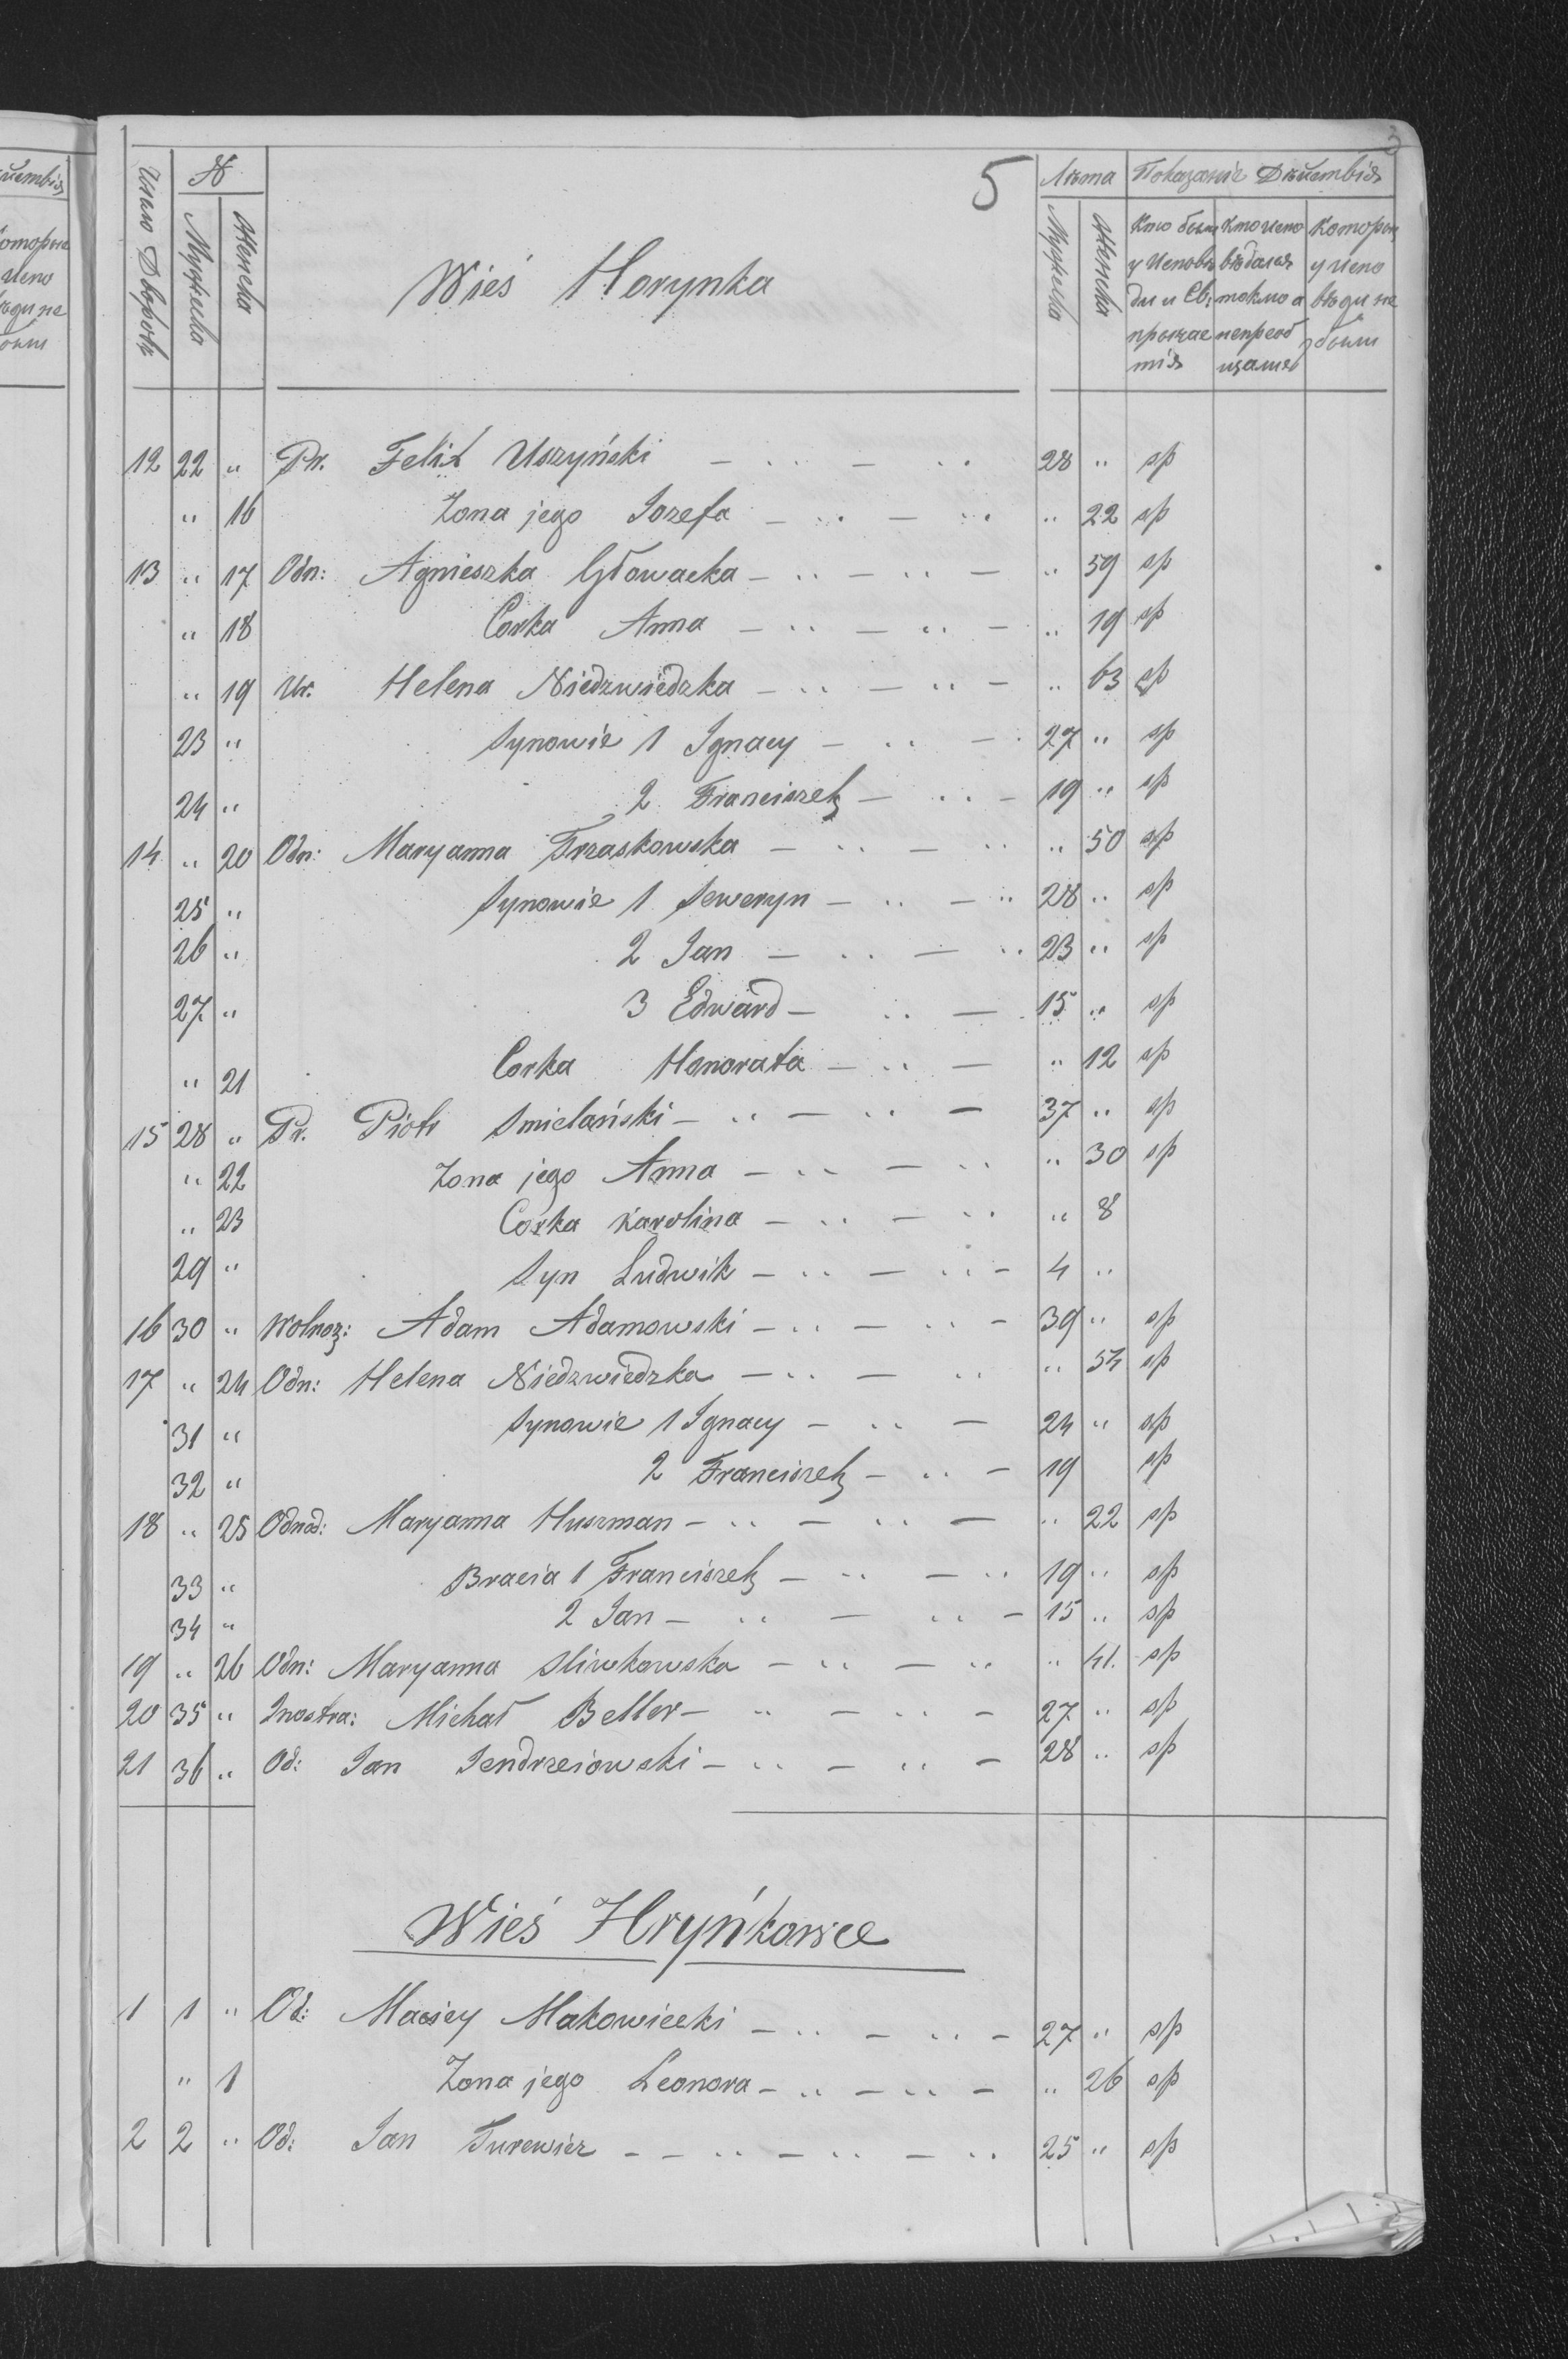 3
5
Число Дворовъ № Мужеска Женска
Wieś Horynka
Лѣта Мужеска Женска
Показаніе Дѣйствія
Кто были у Исповѣди и Св: причастія
кто исповѣдался токмо а непреобщался
которыя у исповѣди не были
12 22 " Pr. Felix Uszyński 28 " sp
" 16 Zona jego Jozefa " 22 sp
13 " 17 Odn: Agnieszka Głowacka " 59 sp
" 18 Corka Anna " 19 sp
" 19 Ur. Helena Niedzwiedzka " 63 sp
23 " Synowie 1 Ignacy 27 " sp
24 " 2 Franciszek 19 " sp
14 " 20 Odn: Maryanna Trzaskowska " 50 sp
25 " Synowie 1 Seweryn 28 " sp
26 " 2 Jan 23 " sp
27 " 3 Edward 15 " sp
" 21 Corka Honorata " 12 sp
15 28 " Pr. Piotr Smielański 37 " sp
" 22 Zona jego Anna " 30 sp
" 23 Corka Karolina " 8
29 " Syn Ludwik 4 "
16 30 " Wolnoz: Adam Adamowski 39 " sp
17 " 24 Odn: Helena Niedzwiedzka " 54 sp
31 " Synowie 1 Ignacy 24 " sp
32 " 2 Franciszek 19 sp
18 " 25 Odnod: Maryanna Huszman " 22 sp
33 " Bracia 1 Franciszek 19 " sp
34 " 2 Jan 15 " sp
19 " 26 Odn: Maryanna Sliwkowska " 41. sp
20 35 " Inostra: Michał Beller 27 " sp
21 36 " Od: Jan Jendrzeiowski 28 " sp
Wieś Hryńkowce
1 1 " Od: Maciey Makowiecki 27 " sp
" 1 Zona jego Leonora " 26 sp
2 2 " Od: Jan Turewicz 25 " sp